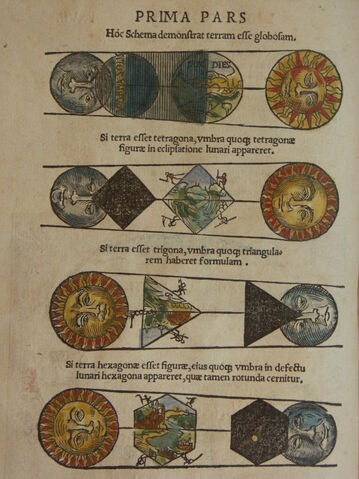 PRIMA PARS
Hóc Schema demonstrat terram esse globosam.
DIES
Si terra esset tetragona, vmbra quoq; tetragonæ
figuræ in eclipsatione lunari appareret.
Si terra esset trigona, vmbra quoq; triangula-
rem haberet formulam.
Si terra hexagonæ esset figuræ, eius quoq; vmbra in defectu
lunari hexagona appareret, quæ tamen rotunda cernitur.